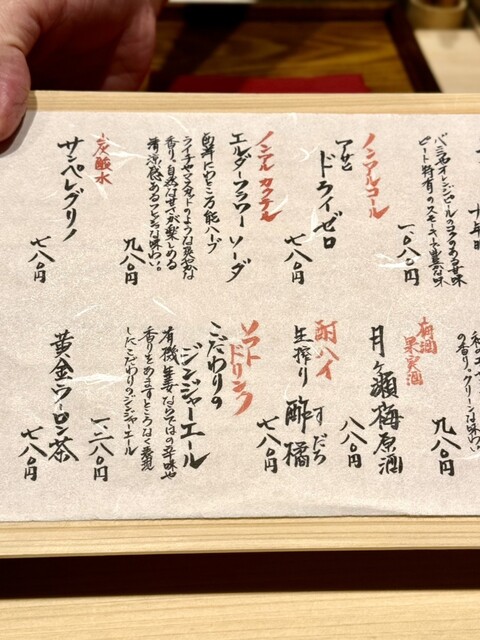 バニラやオレンジピールのコクのある甘味
ピート特有のスモーキーで豊かな味
一、〇八〇円
ノンアルコール
アサヒ
ドライゼロ
七八〇円
ノンアルカクテル
エルダーフラワーソーダ
西洋にわとこ万能ハーブ
ライチやマスカットのような爽やかな
香り。自然な甘さが楽しめる
清涼感あるフレッシュな味わい。
九八〇円
炭酸水
サンペレグリノ
七八〇円
の香り。クリーンな味わい
九八〇円
梅酒
果実酒
月ヶ瀬梅原酒
八八〇円
酎ハイ
すだち
生搾り 酢橘
七八〇円
ソフト
ドリンク
こだわりの
ジンジャーエール
有機生姜ならではの辛味や
香りをあますところなく表現
したこだわりのジンジャーエール
一、二八〇円
黄金ウーロン茶
七八〇円